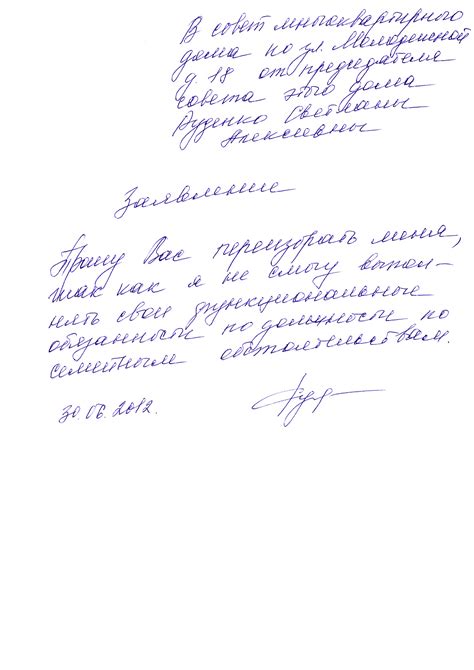 В совет многоквартирного
дома по ул. Молодежной
д 18 от председателя
совета этого дома
Руденко Светланы
Алексеевны
Заявление
Прошу Вас переизбрать меня,
так как я не смогу выпол-
нять свои функциональные
обязанности по должности по
семейным обстоятельствам.
30.06.2012.